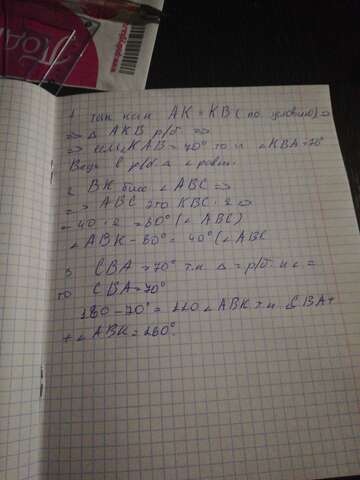 Поди
1 так как AK = KB (по условию) ⇒
⇒ Δ AKB р/б ⇒
⇒ если ∠KAB = 70° то и ∠KBA = 70°
Ведь в р/б Δ ∠ равны.
2 BK бис ∠ABC ⇒
⇒ ABC это KBC · 2 ⇒
= 40 · 2 = 80° (∠ABC)
∠ABK - 80° = 40° (∠ABC
3 CBA = 70° т.к Δ = р/б и ∠ =
то CBA = 70°
180 - 70° = 110 ∠ABK т.к CBA +
+ ∠ABK = 180°